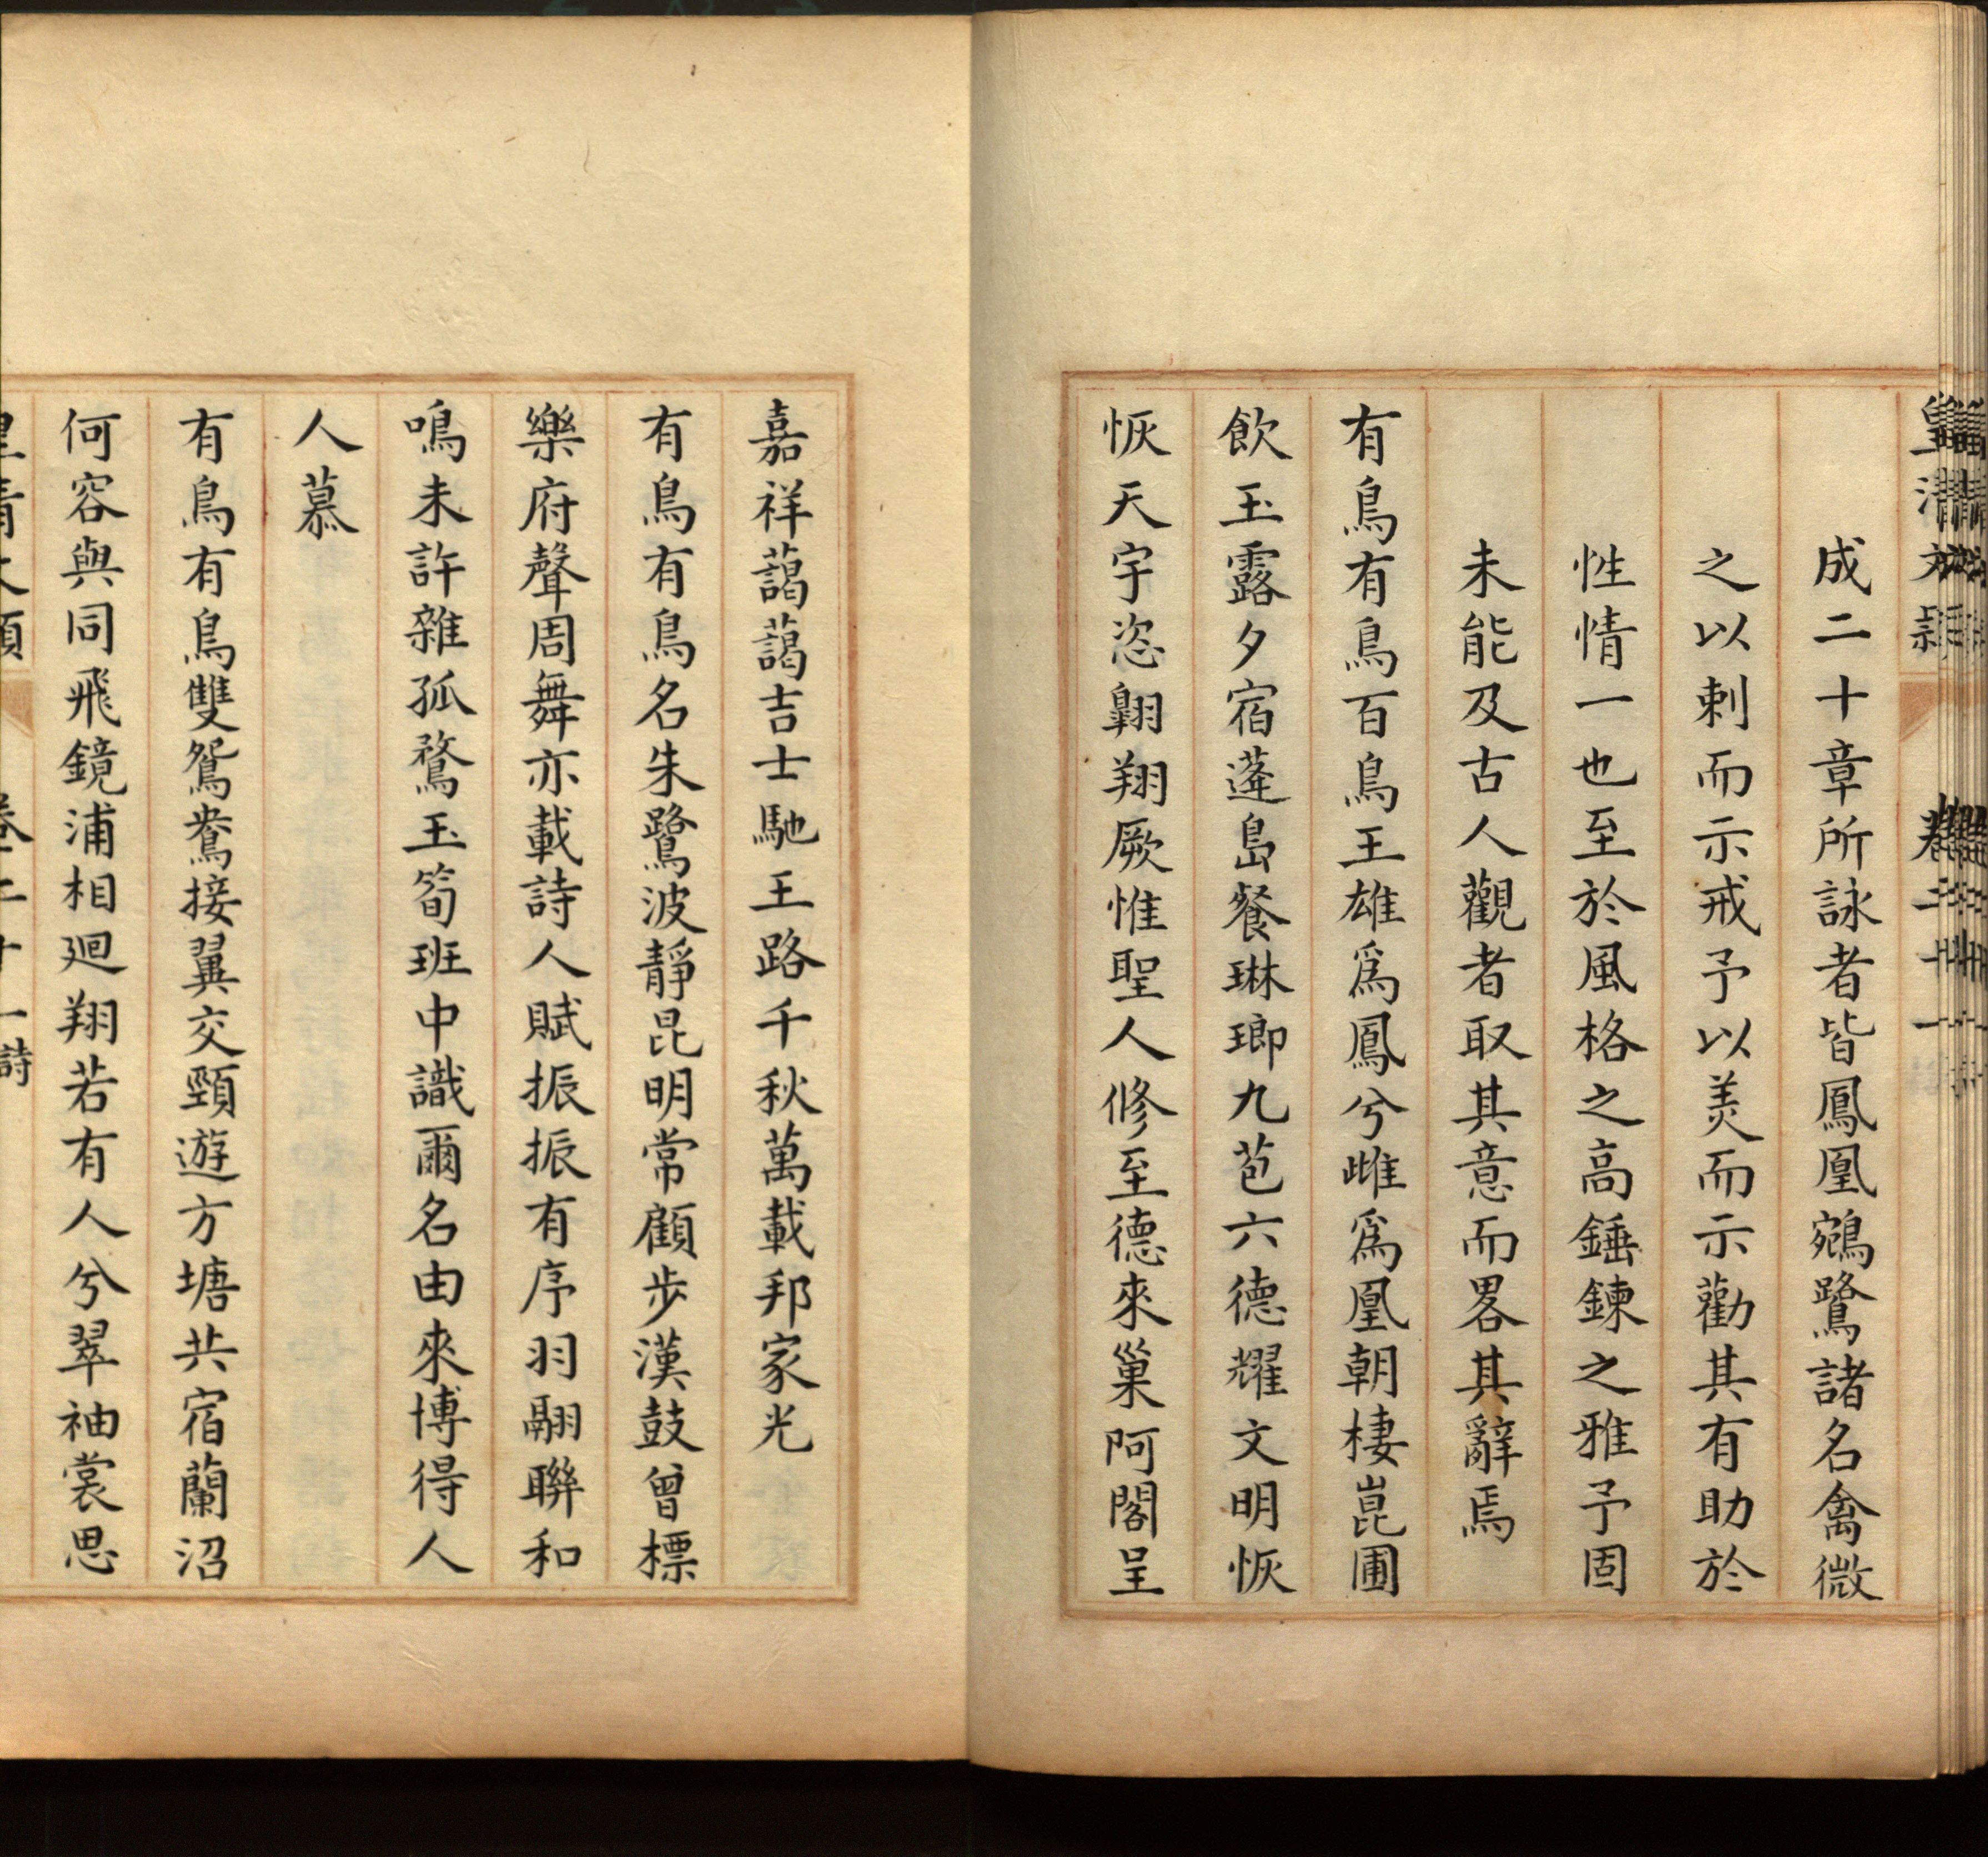 皇清文穎 卷二十一
成二十章所詠者皆鳳凰鵷鷺諸名禽微
之以刺而示戒予以美而示勸其有助於
性情一也至於風格之高錘鍊之雅予固
未能及古人觀者取其意而畧其辭焉
有鳥有鳥百鳥王雄爲鳳兮雌爲凰朝棲崑圃
飲玉露夕宿蓬島餐琳瑯九苞六德耀文明恢
恢天宇恣翺翔厥惟聖人修至德來巢阿閣呈
嘉祥藹藹吉士馳王路千秋萬載邦家光
有鳥有鳥名朱鷺波靜昆明常顧步漢鼓曾標
樂府聲周舞亦載詩人賦振振有序羽翮聯和
鳴未許雜孤鶩玉筍班中識爾名由來博得人
人慕
有鳥有鳥雙鴛鴦接翼交頸遊方塘共宿蘭沼
何容與同飛鏡浦相迴翔若有人兮翠袖裳思
皇清文穎 卷二十一 詩